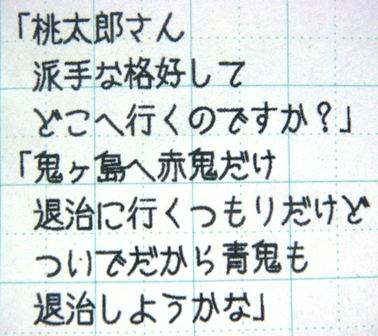 「桃太郎さん
派手な格好して
どこへ行くのですか?」
「鬼ヶ島へ赤鬼だけ
退治に行くつもりだけど
ついでだから青鬼も
退治しようかな」